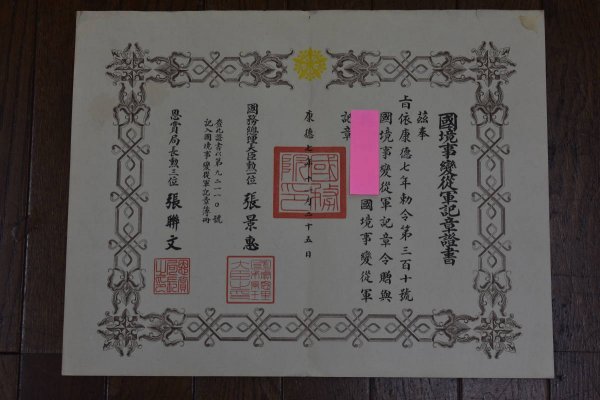 國境事變從軍記章證書
茲奉
旨依康德七年勅令第三百十號
國境事變從軍記章令贈與
國境事變從軍
記章
康德七年十月二十五日
國務總理大臣勲一位 張景惠
查此證書以第九二一一〇號
記入國境事變從軍記章簿冊
恩賞局長勲三位 張聯文